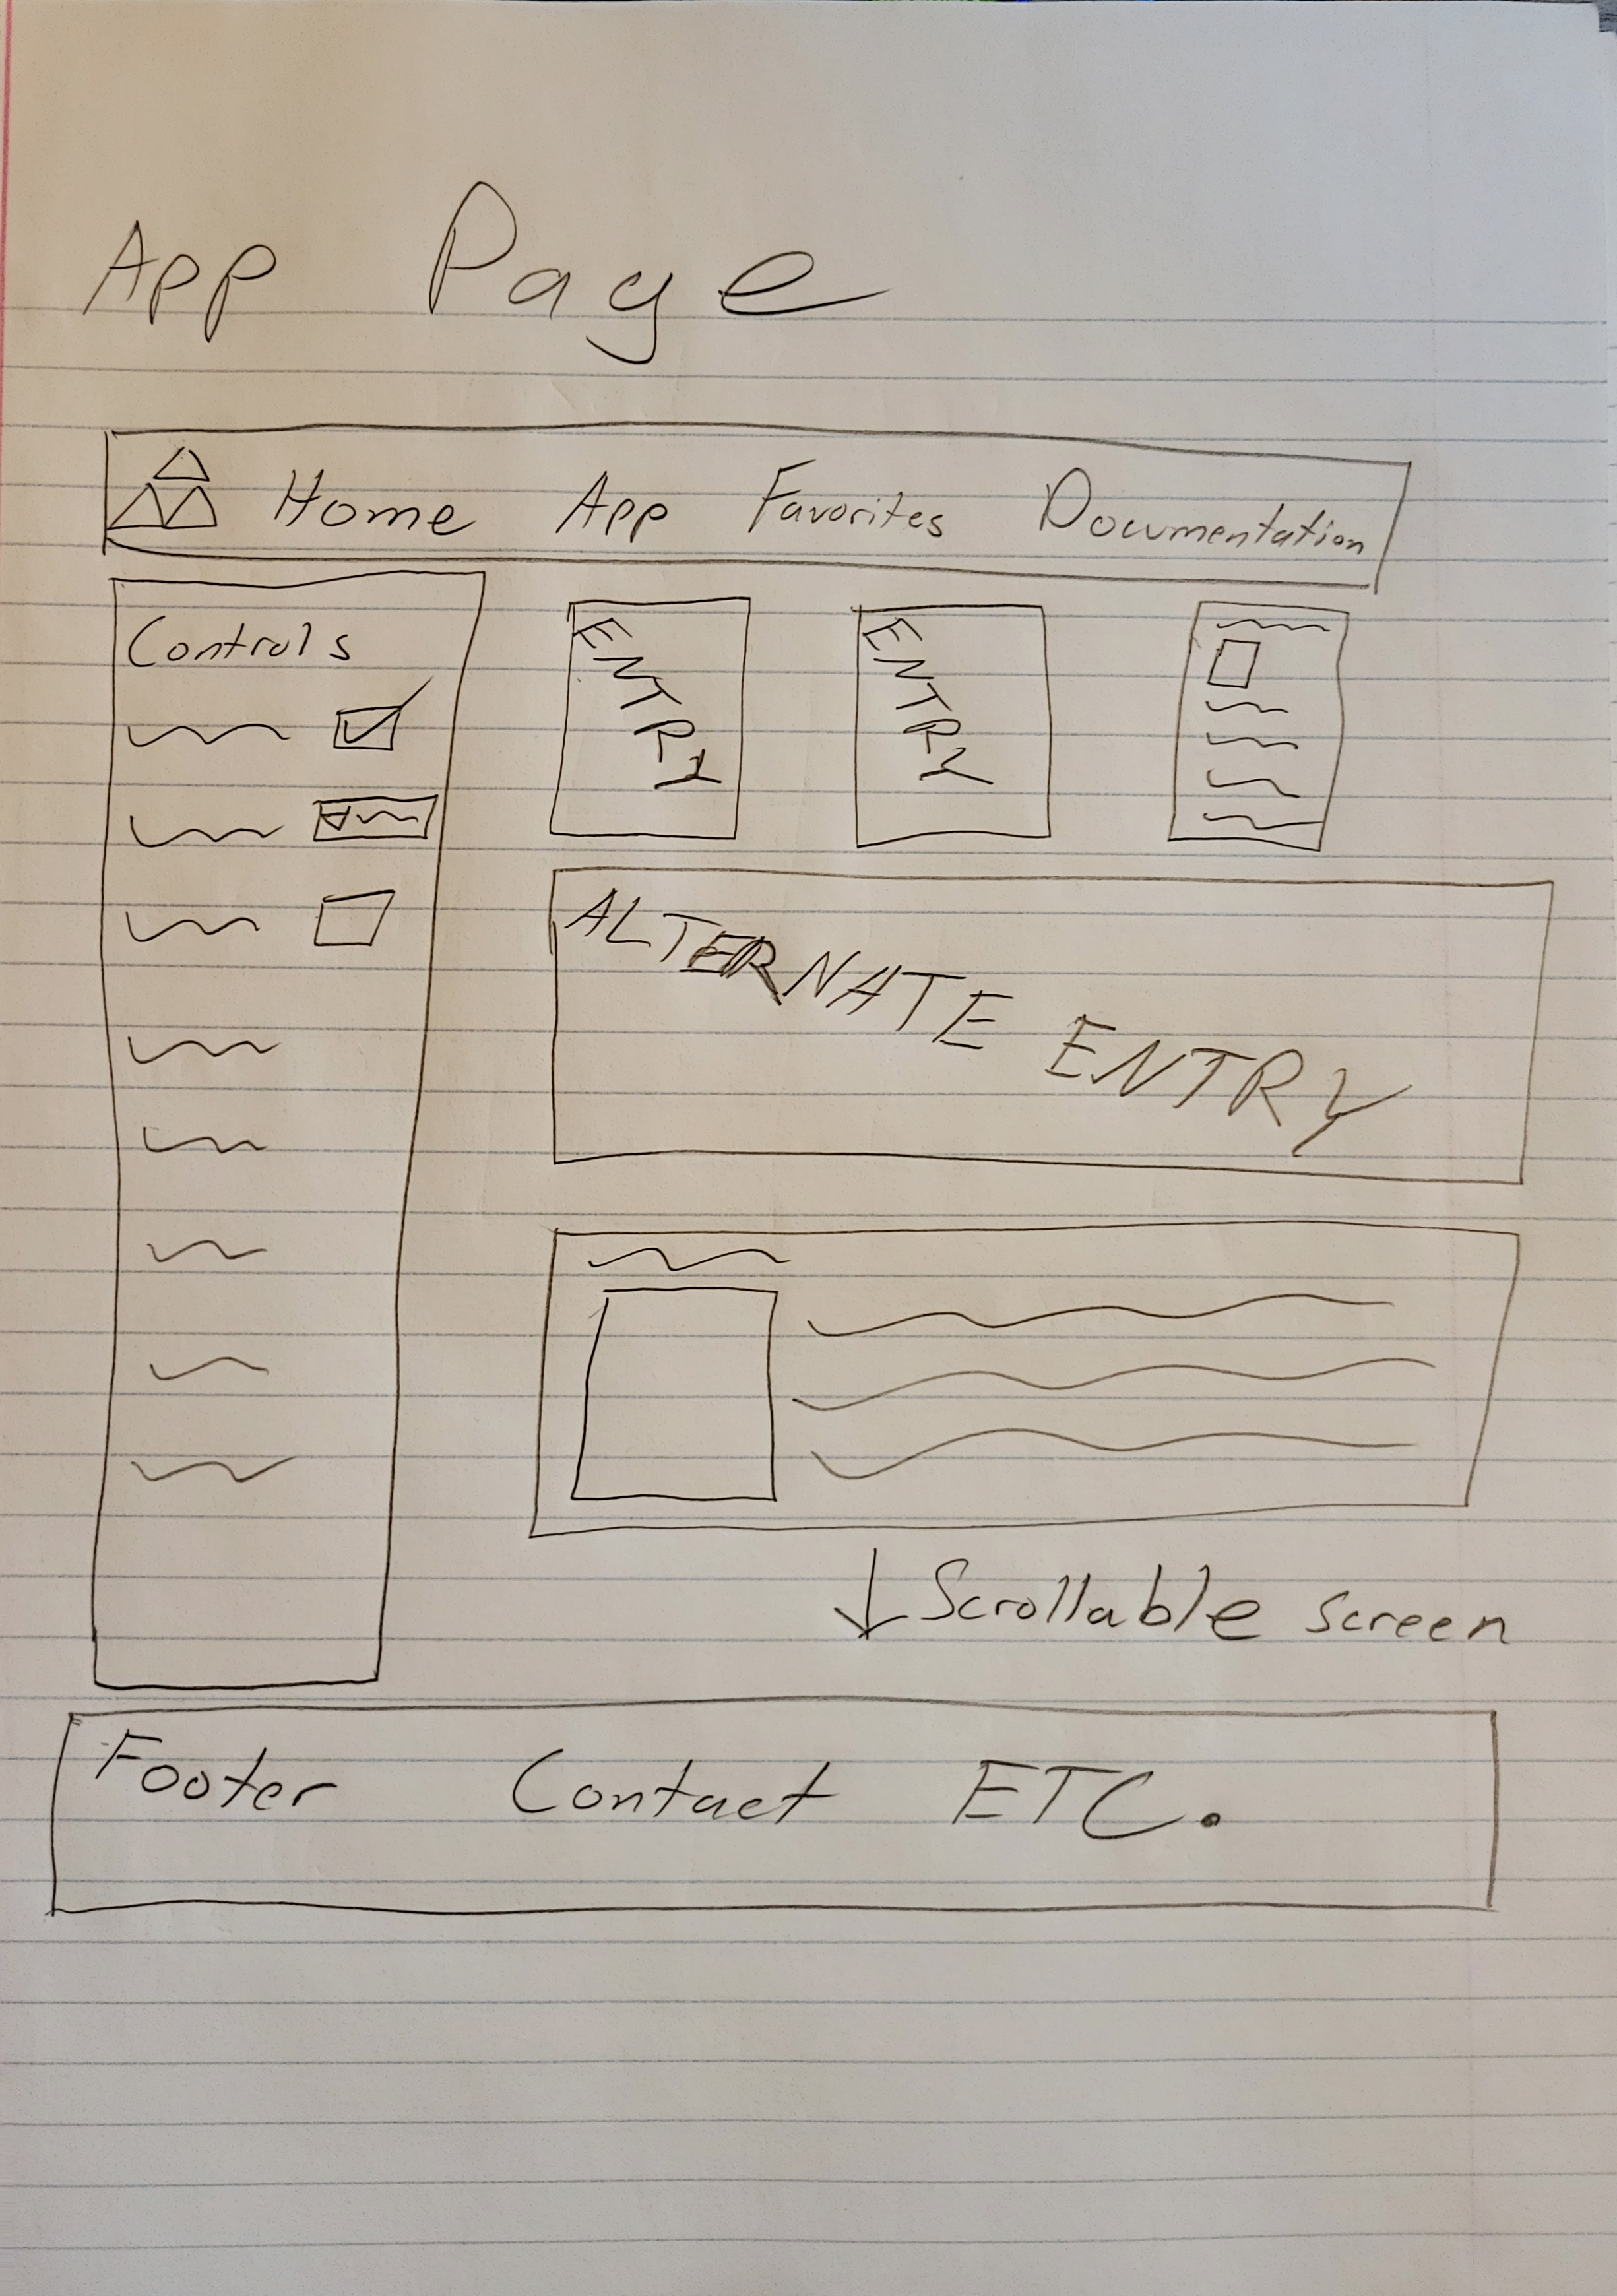 App Page
Home App Favorites Documentation
Controls
ENTRY
ENTRY
ALTERNATE ENTRY
Scrollable screen
Footer Contact ETC.